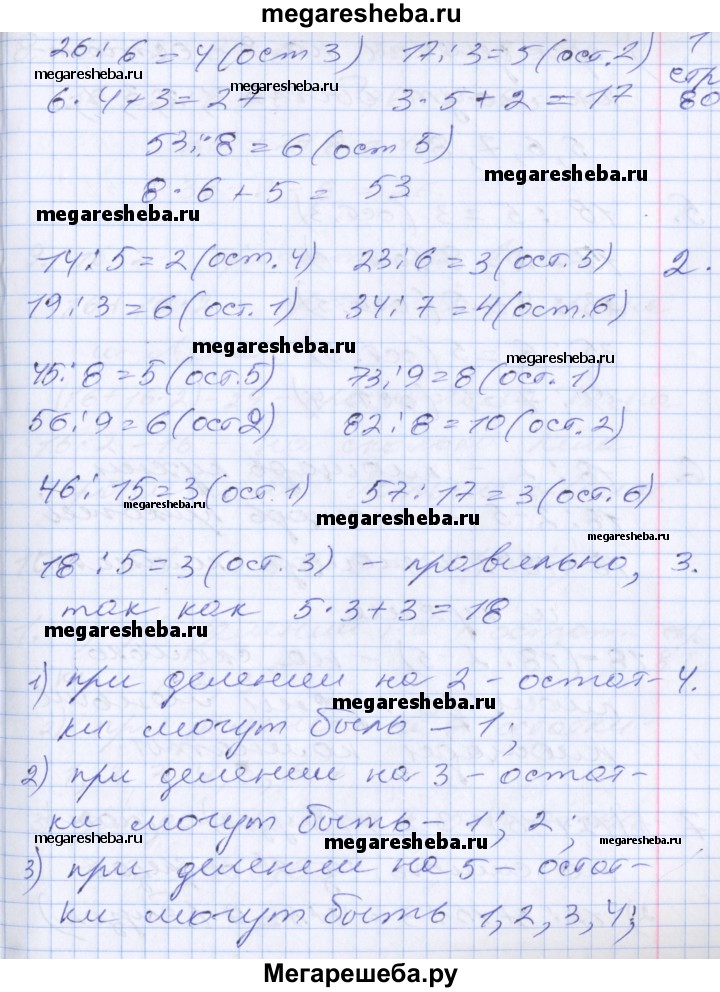 megaresheba.ru
26 : 6 = 4 (ост 3) 17 : 3 = 5 (ост. 2) 1
стр
megaresheba.ru megaresheba.ru
6 · 4 + 3 = 27 3 · 5 + 2 = 17 80
53 : 8 = 6 (ост 5)
megaresheba.ru
8 · 6 + 5 = 53
megaresheba.ru
14 : 5 = 2 (ост. 4) 23 : 6 = 3 (ост. 5) 2.
19 : 3 = 6 (ост. 1) 34 : 7 = 4 (ост. 6)
megaresheba.ru
megaresheba.ru
45 : 8 = 5 (ост. 5) 73 : 9 = 8 (ост. 1)
56 : 9 = 6 (ост 2) 82 : 8 = 10 (ост. 2)
46 : 15 = 3 (ост. 1) 57 : 17 = 3 (ост. 6)
megaresheba.ru
megaresheba.ru
megaresheba.ru
18 : 5 = 3 (ост. 3) - правильно, 3.
так как 5 · 3 + 3 = 18
megaresheba.ru
1) при делении на 2 - остат- 4.
megaresheba.ru
ки могут быть - 1;
2) при делении на 3 - остат-
ки могут быть - 1; 2;
megaresheba.ru megaresheba.ru
3) при делении на 5 - остат-
ки могут быть 1, 2, 3, 4;
Мегарешеба.ру